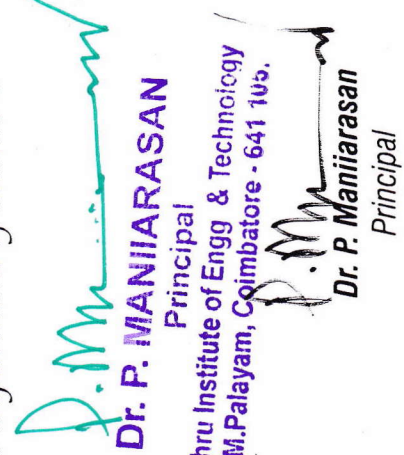 Dr. P. MANIIARASAN
Principal
hru Institute of Engg & Technology
M.Palayam, Coimbatore - 641 105.
Dr. P. Maniiarasan
Principal